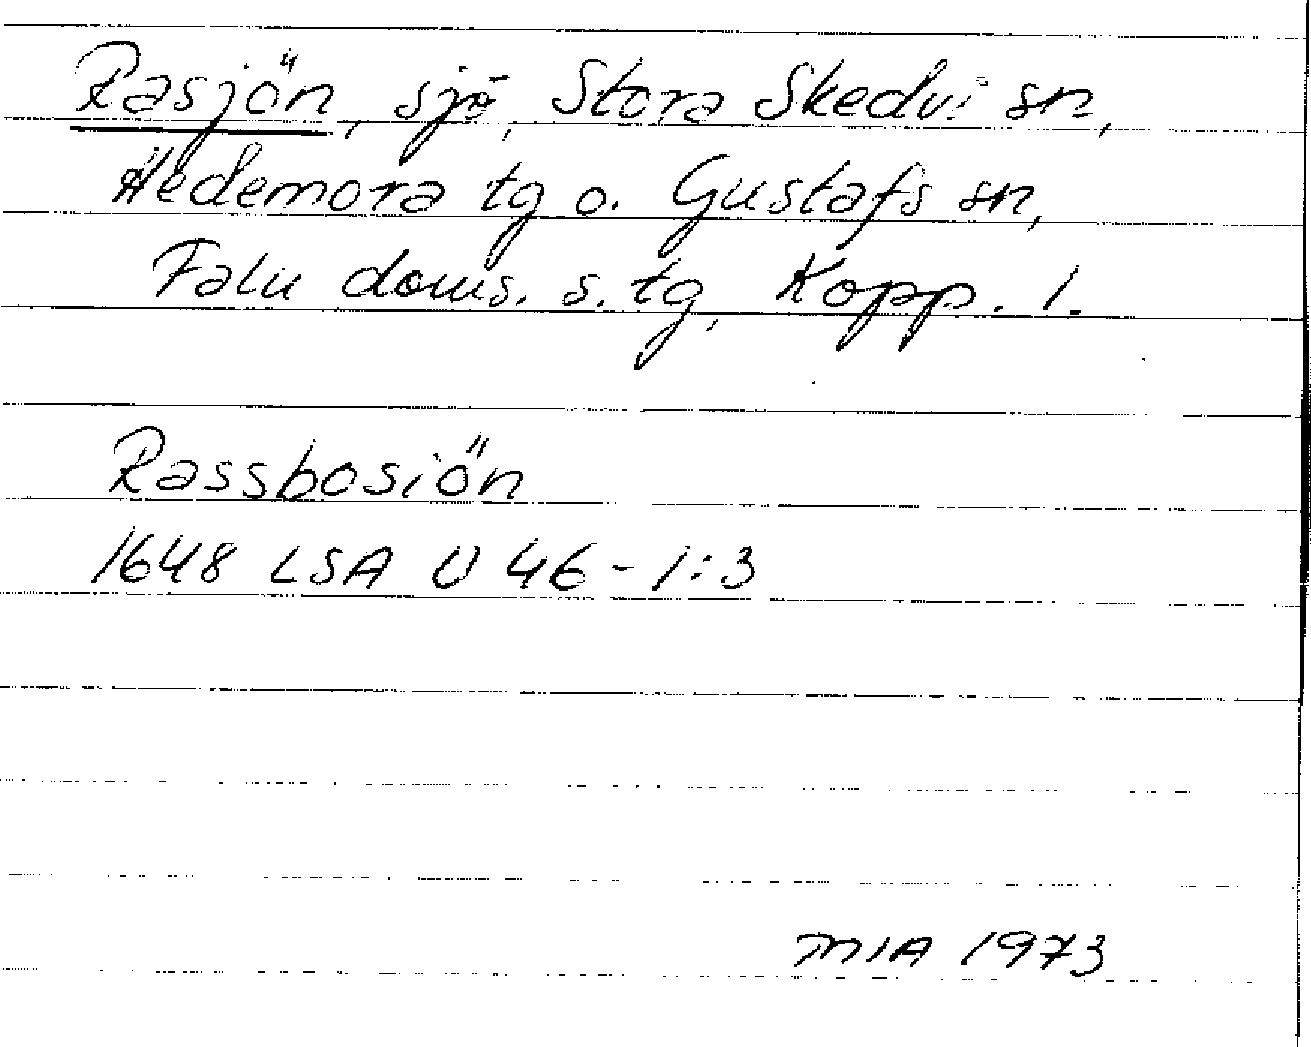 Rasjön, sjö, Stora Skedvi sn,
Hedemora tg o. Gustafs sn,
Falu doms. s. tg, Kopp. l.
Rassbosiön
1648 LSA U 46-1:3
MIA 1973